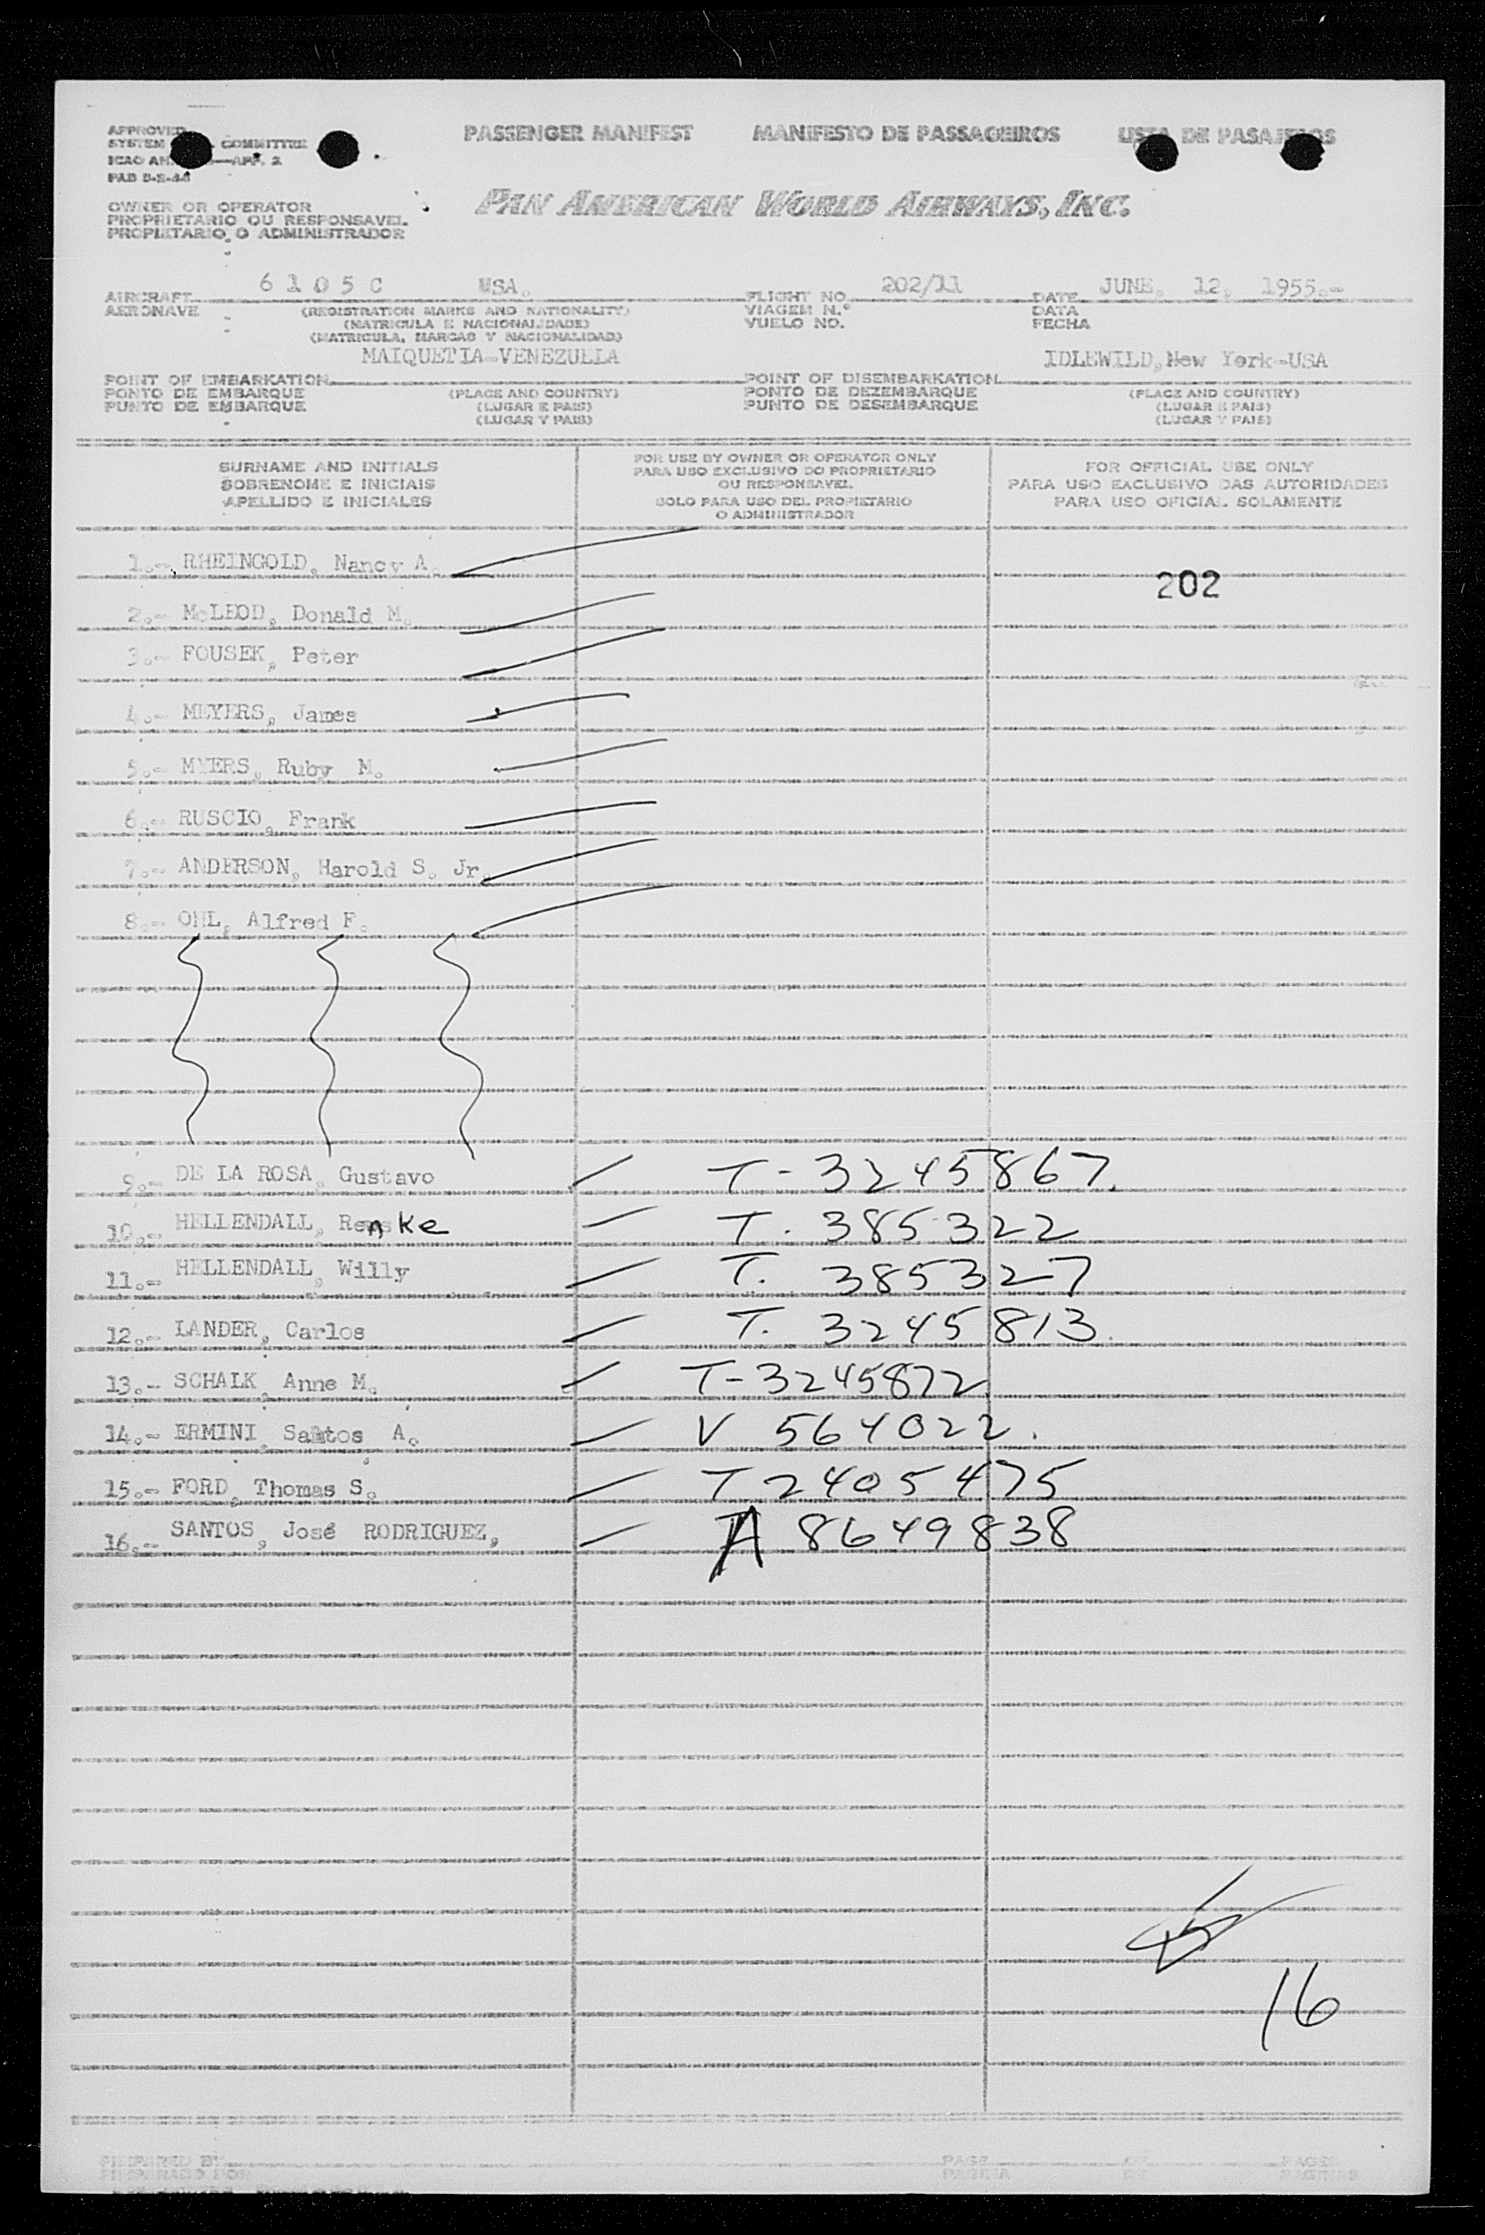 PASSENGER MANIFEST MANIFESTO DE PASSAGEIROS LISTA DE PASAJEROS
APPROVED
SYSTEM COMMITTEE
ICAO AN. —APP. 2
OWNER OR OPERATOR
PROPRIETARIO OU RESPONSAVEL
PROPIETARIO O ADMINISTRADOR
PAN AMERICAN WORLD AIRWAYS, INC.
AIRCRAFT 6105C USA. FLIGHT NO. 202/11 DATE JUNE. 12, 1955.-
AERONAVE (REGISTRATION MARKS AND NATIONALITY) VIAGEM N.º DATA
(MATRICULA E NACIONALIDADE) VUELO NO. FECHA
(MATRICULA, MARCAS Y NACIONALIDAD)
MAIQUETIA-VENEZUELA IDLEWILD, New York-USA
POINT OF EMBARKATION POINT OF DISEMBARKATION
PONTO DE EMBARQUE (PLACE AND COUNTRY) PONTO DE DEZEMBARQUE (PLACE AND COUNTRY)
PUNTO DE EMBARQUE (LUGAR E PAIS) PUNTO DE DESEMBARQUE (LUGAR E PAIS)
(LUGAR Y PAIS) (LUGAR Y PAIS)
SURNAME AND INITIALS
SOBRENOME E INICIAIS
APELLIDO E INICIALES
FOR USE BY OWNER OR OPERATOR ONLY
PARA USO EXCLUSIVO DO PROPRIETARIO
OU RESPONSAVEL
SOLO PARA USO DEL PROPIETARIO
O ADMINISTRADOR
FOR OFFICIAL USE ONLY
PARA USO EXCLUSIVO DAS AUTORIDADES
PARA USO OFICIAL SOLAMENTE
1.- RHEINGOLD, Nancy A.
202
2.- McLEOD, Donald M.
3.- FOUSEK, Peter
4.- MEYERS, James
5.- MYERS, Ruby M.
6.- RUSCIO, Frank
7.- ANDERSON, Harold S. Jr.
8.- OHL, Alfred F.
9.- DE LA ROSA, Gustavo T-3245867.
10.- HELLENDALL, Renske T. 385322
11.- HELLENDALL, Willy T. 385327
12.- LANDER, Carlos T. 3245813.
13.- SCHALK, Anne M. T-3245872
14.- ERMINI, Santos A. V 564022.
15.- FORD, Thomas S. T 2405475
16.- SANTOS, José RODRIGUEZ, A 8649838
16
PREPARED BY PAGE OF PAGES